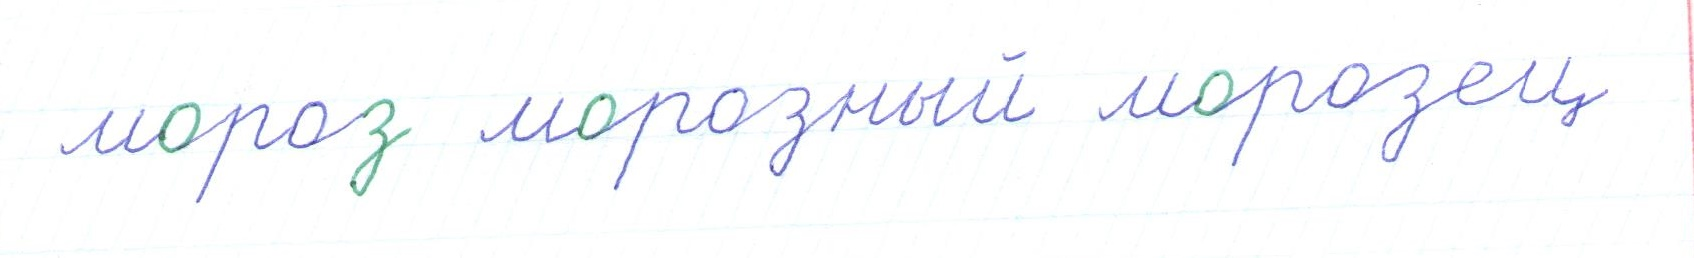 мороз морозный морозец